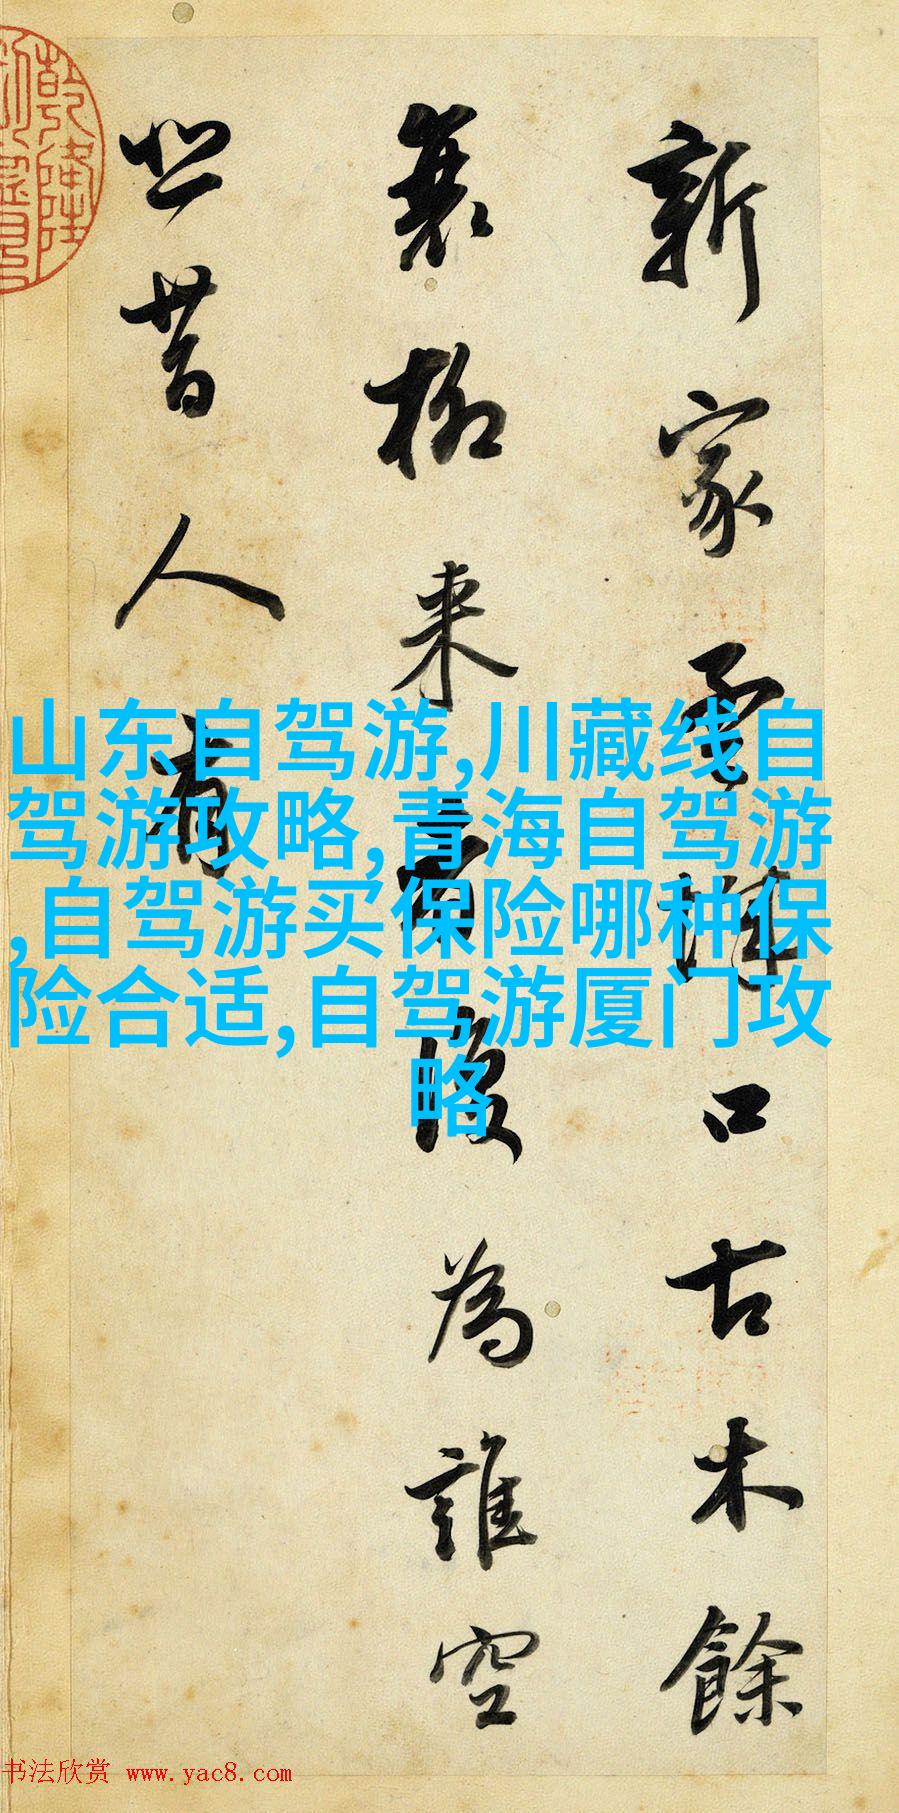 新家孟城口古木餘
衰柳來者復為誰空
悲昔人有
山东自驾游,川藏线自
驾游攻略,青海自驾游
,自驾游买保险哪种保
险合适,自驾游厦门攻
略
书法欣赏 www.yac8.com